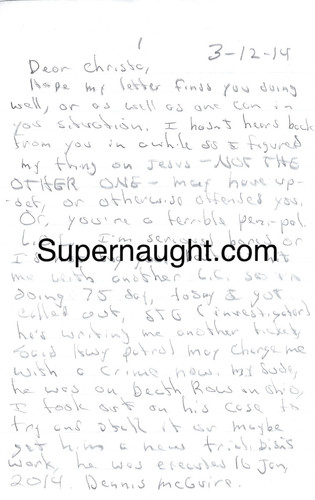 1
3-12-14
Dear Christa,
Hope my letter finds you doing
well, or as well as one can in
you situation. I hasn't hears back
from you in awhile so I figured
my thing on Jesus - NOT THE
OTHER ONE - may have up-
set, or otherwise offended you.
Or, you're a terrible pen-pal.
Supernaught.com
me with another
doing 75 day, today I got
called out, STG (investigator)
he's writing me another ticket,
said Hwy patrol may charge me
with a crime now. My dude,
he was on Death Row in Ohio,
I took out on his case to
try and stall it or maybe
get him a new trial.
work, he was executed 16 Jan,
2014. Dennis McGuire.